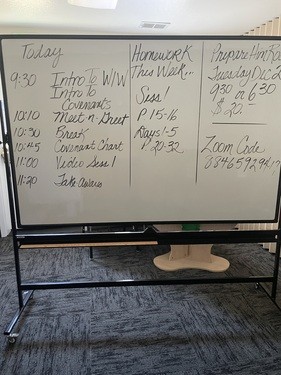 Today
9:30 Intro To W/W
Intro To
Covenants
10:10 Meet n Greet
10:30 Break
10:45 Covenant Chart
11:00 Video Sess 1
11:20 Take Aways
Homework
This Week...
Sess 1
P 15-16
Days 1-5
P 20-32
Prepare
Tuesday Dec 2
9:30 or 6:30
$20.-
Zoom Code